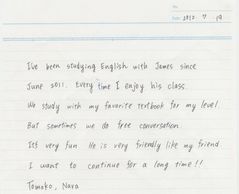 No.
Date 2012 . 7 . 19
I've been studying English with James since
June 2011. Every time I enjoy his class.
We study with my favorite textbook for my level.
But sometimes we do free conversation.
It's very fun He is very friendly like my friend.
I want to continue for a long time!!
Tomoko, Nara